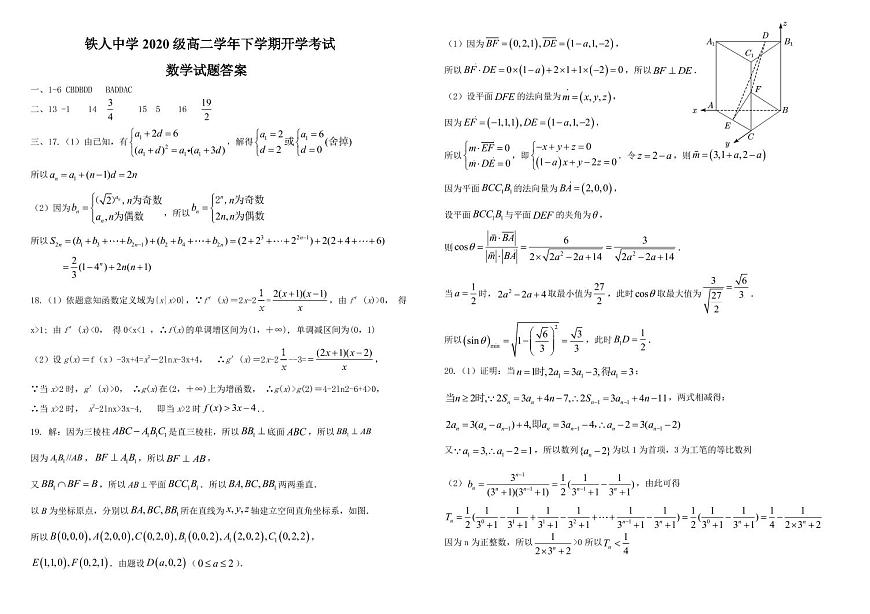 铁人中学 2020 级高二学年下学期开学考试
数学试题答案
一、1-6 CBDBDD BADDAC
二、13 -1 14 3/4 15 5 16 19/2
三、17.（1）由已知，有{a₁+2d=6 (a₁+d)²=a₁•(a₁+3d)，解得{a₁=2 d=2 或{a₁=6 d=0 (舍掉)
所以 aₙ=a₁+(n-1)d=2n
（2）因为 bₙ={(√2)^aₙ,n为奇数 aₙ,n为偶数，所以 bₙ={2ⁿ,n为奇数 2n,n为偶数
所以 S₂ₙ=(b₁+b₃+⋯+b₂ₙ₋₁)+(b₂+b₄+⋯+b₂ₙ)=(2+2³+⋯+2²ⁿ⁻¹)+2(2+4+⋯+6)
=2/3(1-4ⁿ)+2n(n+1)
18.（1）依题意知函数定义域为{x|x>0}，∵f′(x)=2x-2 1/x=2(x+1)(x-1)/x，由 f′(x)>0， 得
x>1；由 f′(x)<0， 得 0<x<1，∴f(x)的单调增区间为(1，+∞)，单调减区间为(0，1)
（2）设 g(x)=f（x）-3x+4=x²-2lnx-3x+4， ∴g′(x)=2x-2 1/x--3=(2x+1)(x-2)/x，
∵当 x>2 时，g′(x)>0， ∴g(x)在(2，+∞)上为增函数， ∴g(x)>g(2)=4-2ln2-6+4>0，
∴当 x>2 时， x²-2lnx>3x-4， 即当 x>2 时 f(x)>3x-4..
19. 解：因为三棱柱 ABC-A₁B₁C₁ 是直三棱柱，所以 BB₁⊥底面 ABC，所以 BB₁⊥AB
因为 A₁B₁//AB，BF⊥A₁B₁，所以 BF⊥AB，
又 BB₁∩BF=B，所以 AB⊥平面 BCC₁B₁．所以 BA,BC,BB₁ 两两垂直．
以 B 为坐标原点，分别以 BA,BC,BB₁ 所在直线为 x,y,z 轴建立空间直角坐标系，如图．
所以 B(0,0,0),A(2,0,0),C(0,2,0),B₁(0,0,2),A₁(2,0,2),C₁(0,2,2)，
E(1,1,0),F(0,2,1)．由题设 D(a,0,2)（0≤a≤2）．
（1）因为 BF=(0,2,1),DE=(1-a,1,-2)，
所以 BF·DE=0×(1-a)+2×1+1×(-2)=0，所以 BF⊥DE．
（2）设平面 DFE 的法向量为 m=(x,y,z)，
因为 EF=(-1,1,1),DE=(1-a,1,-2)，
所以{m·EF=0 m·DE=0，即{-x+y+z=0 (1-a)x+y-2z=0．令 z=2-a，则 m=(3,1+a,2-a)
因为平面 BCC₁B₁ 的法向量为 BA=(2,0,0)，
设平面 BCC₁B₁ 与平面 DEF 的夹角为 θ，
则 cosθ=|m·BA|/|m|·|BA|=6/2×√2a²-2a+14=3/√2a²-2a+14．
当 a=1/2 时，2a²-2a+4 取最小值为 27/2，此时 cosθ 取最大值为 3/√27/2=√6/3．
所以 (sinθ)min=√1-(√6/3)²=√3/3，此时 B₁D=1/2．
20.（1）证明：当 n=1时,2a₁=3a₁-3,得a₁=3；
当n≥2时,∵2Sₙ=3aₙ+4n-7,∴2Sₙ₋₁=3aₙ₋₁+4n-11，两式相减得：
2aₙ=3(aₙ-aₙ₋₁)+4,即aₙ=3aₙ₋₁-4,∴aₙ-2=3(aₙ₋₁-2)
又∵a₁=3,∴a₁-2=1，所以数列{aₙ-2}为以 1 为首项，3 为工笔的等比数列
（2）bₙ=3ⁿ⁻¹/(3ⁿ+1)(3ⁿ⁻¹+1)=1/2(1/3ⁿ⁻¹+1-1/3ⁿ+1)，由此可得
Tₙ=1/2(1/3⁰+1-1/3¹+1+1/3¹+1-1/3²+1+⋯+1/3ⁿ⁻¹+1-1/3ⁿ+1)=1/2(1/3⁰+1-1/3ⁿ+1)=1/4-1/2×3ⁿ+2
因为 n 为正整数，所以 1/2×3ⁿ+2>0 所以 Tₙ<1/4
z
D
A₁
B₁
C₁
F
A
x
B
E
C
y